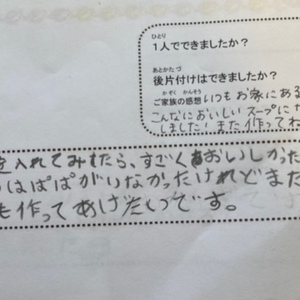 ひとり
1人でできましたか?
あとかたづ
後片付けはできましたか?
かぞく かんそう
ご家族の感想 いつもお家にある
こんなにおいしいスープに
しました!また作ってね
を入れてみたら、すごくおいしかった
はぱぱがいなかったけれどまた
も作ってあげたいです。